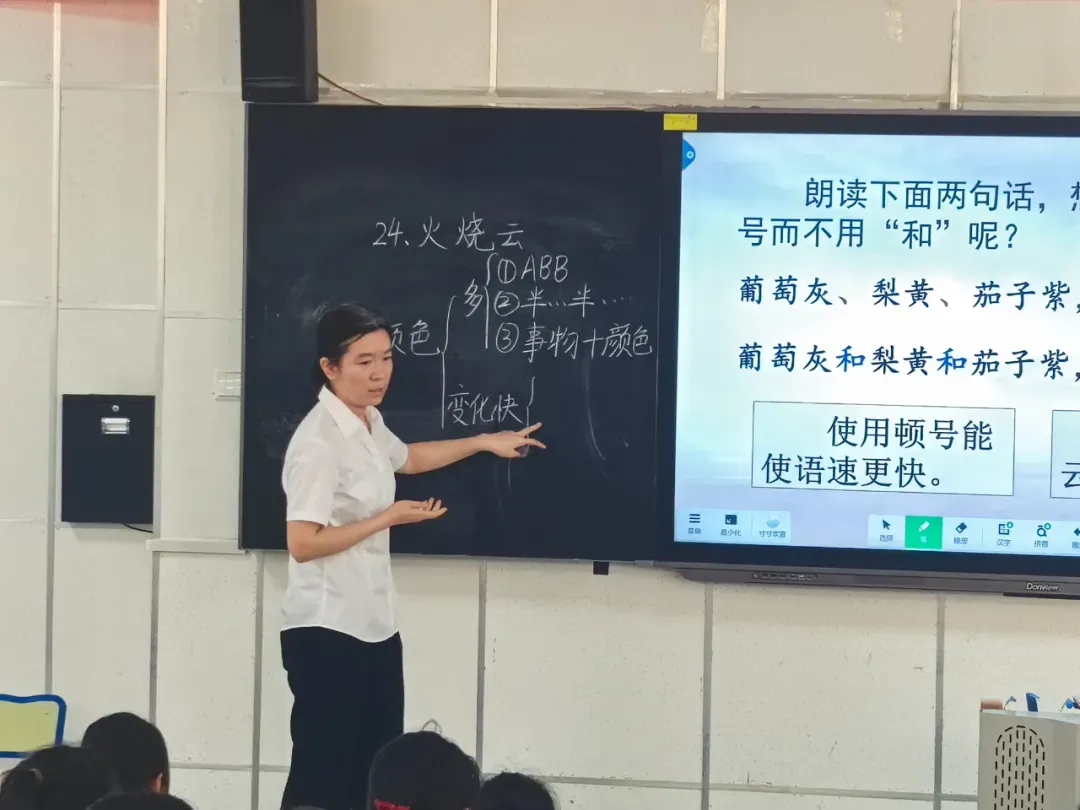 24、火烧云
多
①ABB
②半…半……
③事物+颜色
颜色
变化快
朗读下面两句话，
号而不用“和”呢？
葡萄灰、梨黄、茄子紫，
葡萄灰和梨黄和茄子紫，
使用顿号能
使语速更快。
云
最小化
选择
笔
橡皮
汉字
拼音
Donview